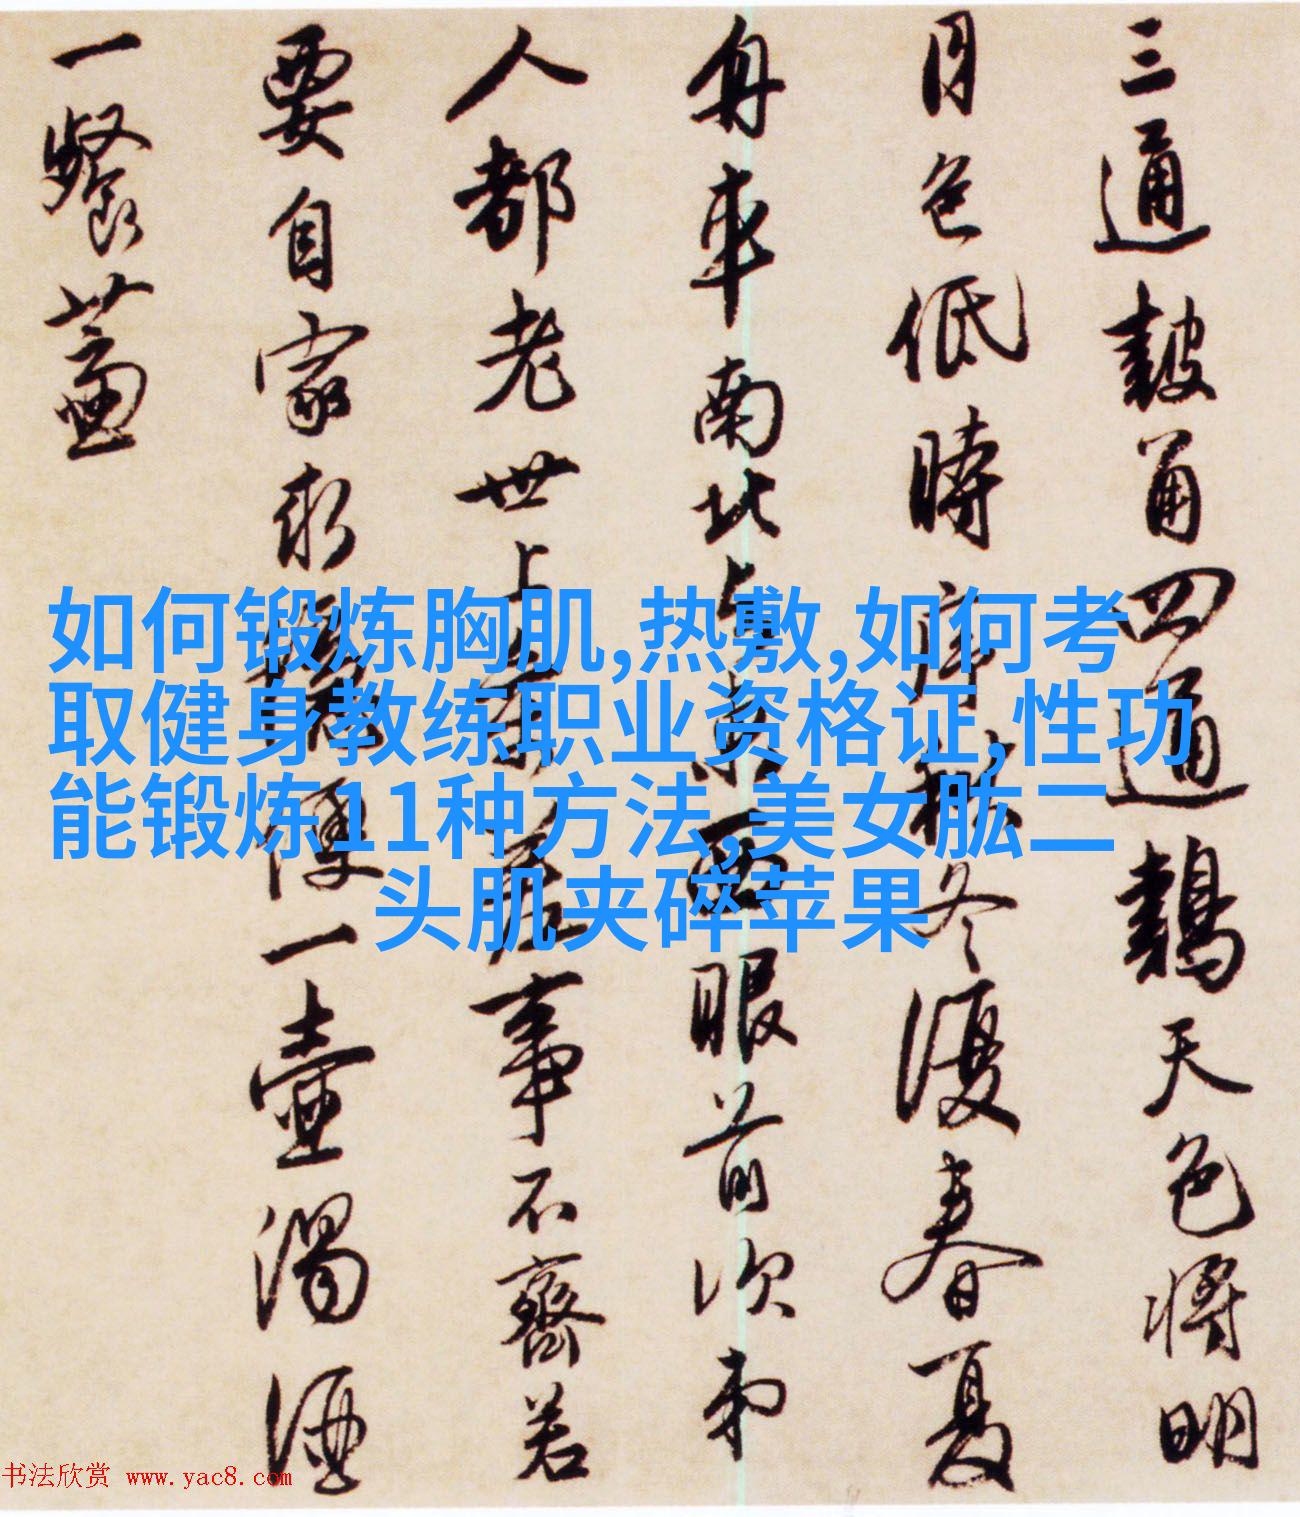 三通鼓角四通鷄天色将明
月色低時序秋冬復春夏
舟車南北与東西眼前次第
人都老世上差事不齊若
要自家求穩便一壺濁酒
一餐虀
如何锻炼胸肌,热敷,如何考
取健身教练职业资格证,性功
能锻炼11种方法,美女肱二
头肌夹碎苹果
书法欣赏 www.yac8.com